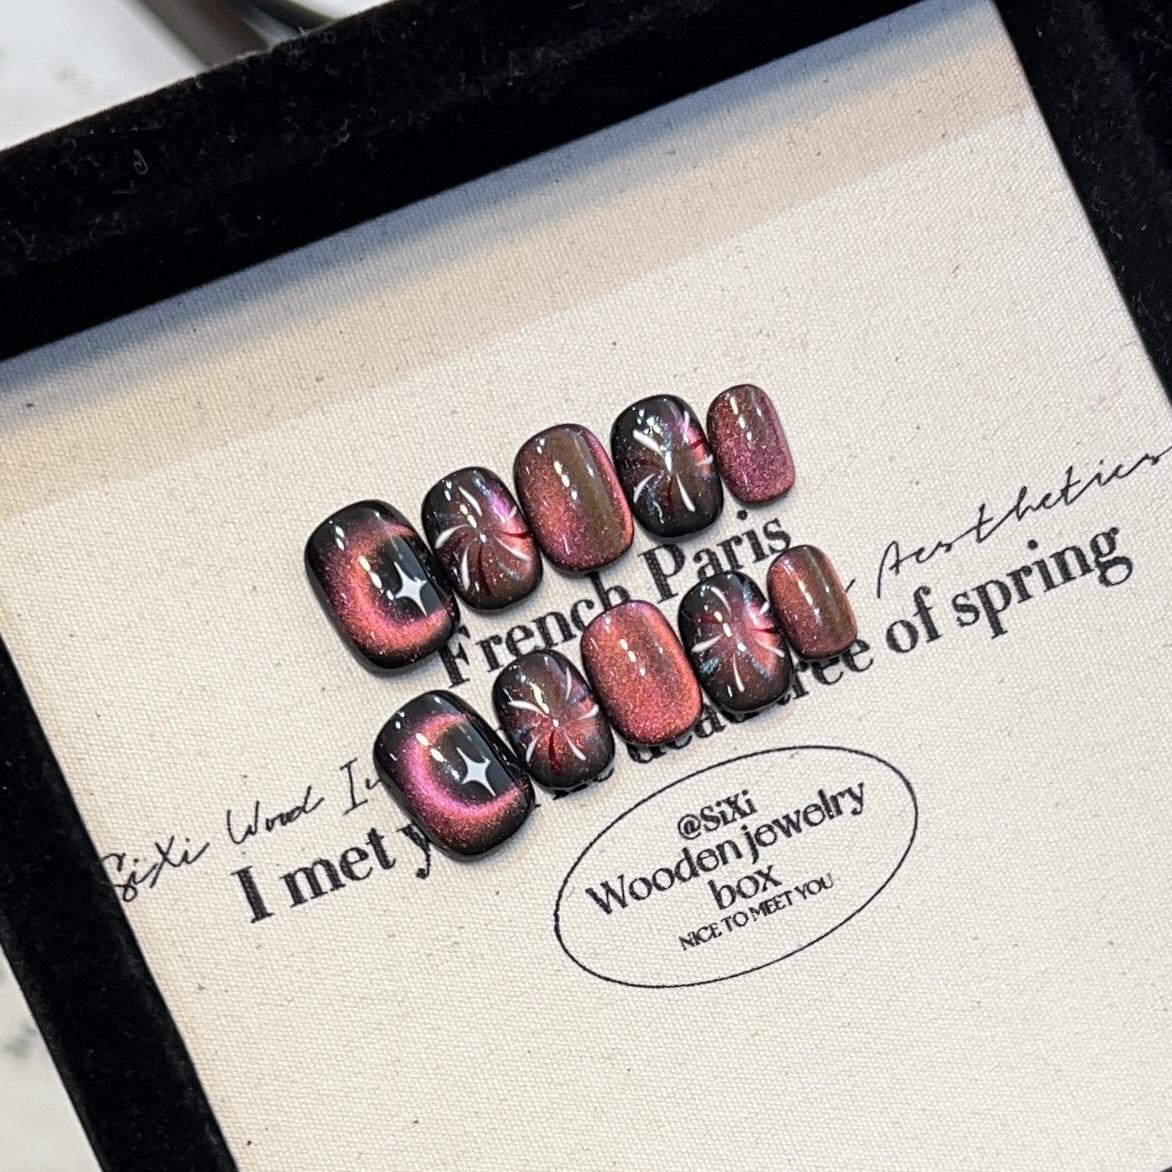 French Paris
SiXi Wood Aesthetics
I met the dead tree of spring
@SiXi
Wooden jewelry
box
NICE TO MEET YOU